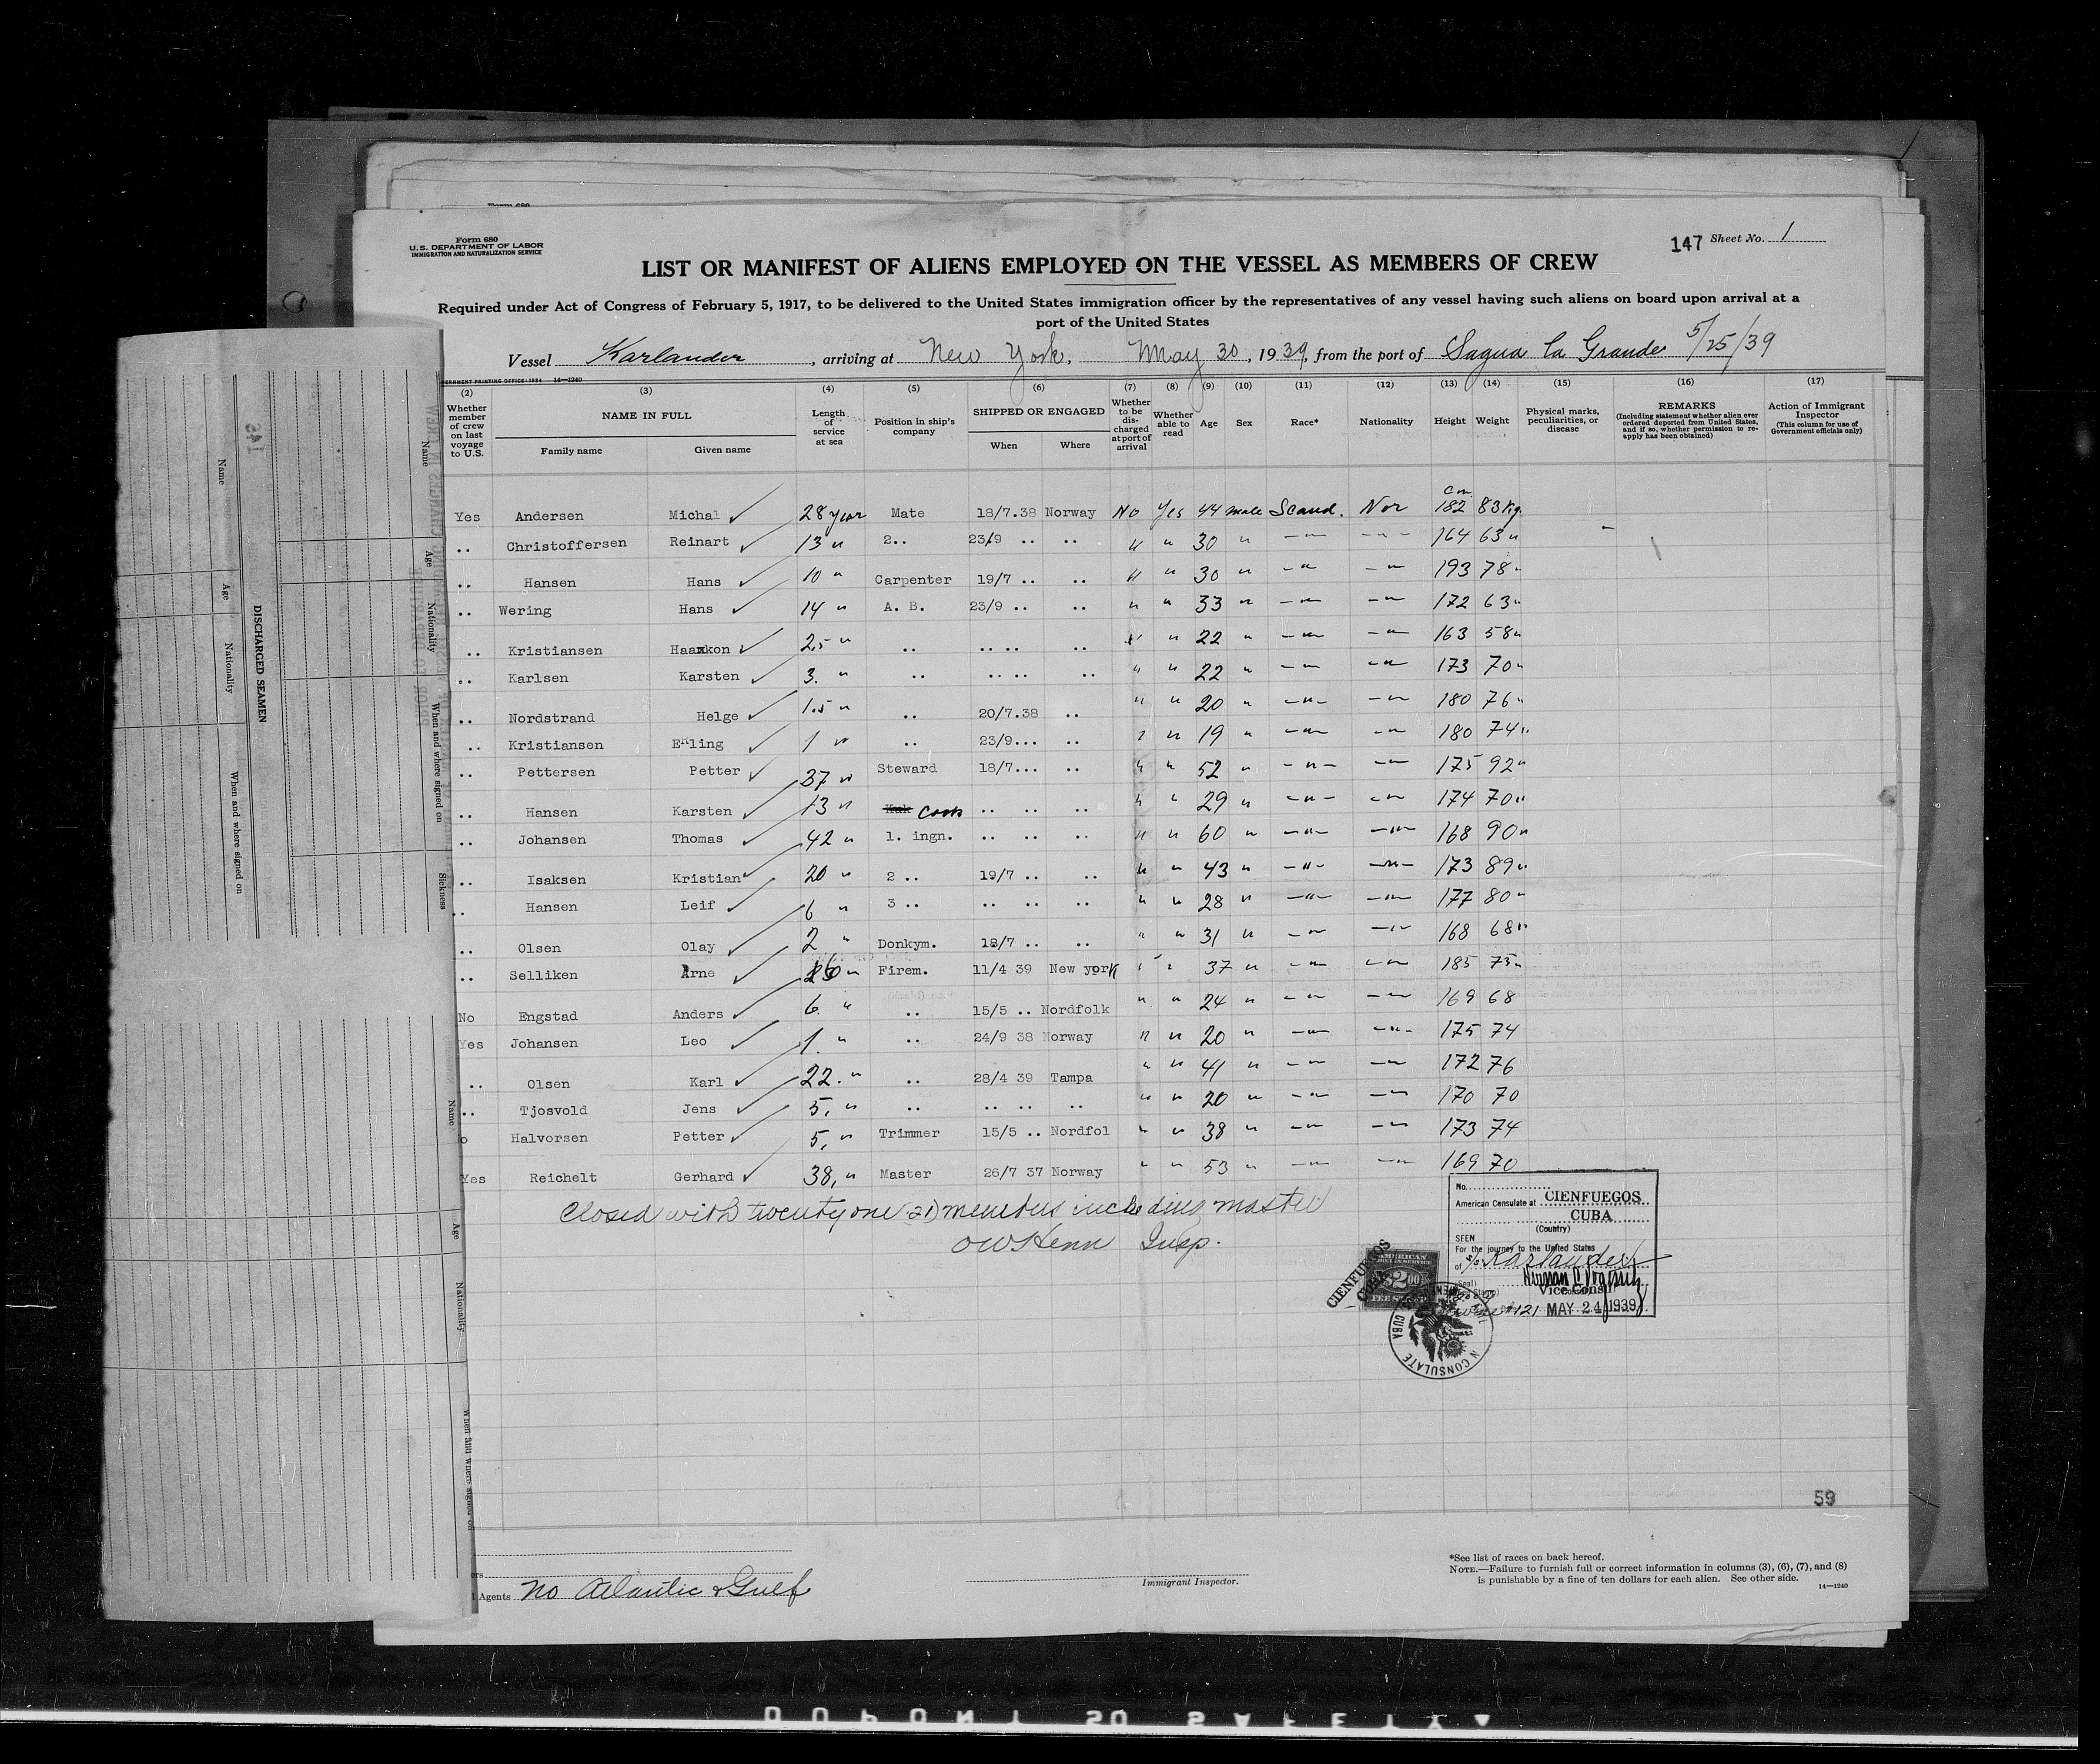 Form 680
U.S. DEPARTMENT OF LABOR
IMMIGRATION AND NATURALIZATION SERVICE
147 Sheet No. 1
LIST OR MANIFEST OF ALIENS EMPLOYED ON THE VESSEL AS MEMBERS OF CREW
Required under Act of Congress of February 5, 1917, to be delivered to the United States immigration officer by the representatives of any vessel having such aliens on board upon arrival at a
port of the United States
Vessel Karlander, arriving at New York, May 30, 1939, from the port of Sagua la Grande 5/25/39
(2) (3) (4) (5) (6) (7) (8) (9) (10) (11) (12) (13) (14) (15) (16) (17)
Whether member of crew on last voyage to U.S.
NAME IN FULL
Family name Given name
Length of service at sea
Position in ship's company
SHIPPED OR ENGAGED
When Where
Whether to be discharged at port of arrival
Whether able to read
Age
Sex
Race*
Nationality
Height
Weight
Physical marks, peculiarities, or disease
REMARKS
(Including statement whether alien ever ordered deported from United States, and if so, whether permission to reapply has been obtained)
Action of Immigrant Inspector
(This column for use of Government officials only)
Yes Andersen Michal 28 year Mate 18/7.38 Norway No Yes 44 male Scand. Nor 182 cm 83 kg.
.. Christoffersen Reinart 13 " 2.. 23/9 .. .. " " 30 " -"- -"- 164 63 "
.. Hansen Hans 10 " Carpenter 19/7 .. .. " " 30 " -"- -"- 193 78 "
.. Wering Hans 14 " A. B. 23/9 .. .. " " 33 " -"- -"- 172 63 "
.. Kristiansen Haankon 2.5 " .. .. .. .. " " 22 " -"- -"- 163 58 "
.. Karlsen Karsten 3. " .. .. .. .. " " 22 " -"- -"- 173 70 "
.. Nordstrand Helge 1.5 " .. 20/7.38 .. " " 20 " -"- -"- 180 76 "
.. Kristiansen Erling 1 " .. 23/9... .. " " 19 " -"- -"- 180 74 "
.. Pettersen Petter 37 " Steward 18/7... .. " " 52 " -"- -"- 175 92 "
.. Hansen Karsten 13 " Cook .. .. .. " " 29 " -"- -"- 174 70 "
.. Johansen Thomas 42 " 1. ingn. .. .. .. " " 60 " -"- -"- 168 90 "
.. Isaksen Kristian 20 " 2 .. 19/7 .. .. " " 43 " -"- -"- 173 89 "
.. Hansen Leif 6 " 3 .. .. .. .. " " 28 " -"- -"- 177 80 "
.. Olsen Olay 2 " Donkym. 18/7 .. .. " " 31 " -"- -"- 168 68 "
.. Selliken Arne " Firem. 11/4 39 New york " " 37 " -"- -"- 185 75 "
No Engstad Anders 6. " .. 15/5 .. Nordfolk " " 24 " -"- -"- 169 68
Yes Johansen Leo 1. " .. 24/9 38 Norway " " 20 " -"- -"- 175 74
.. Olsen Karl 22. " .. 28/4 39 Tampa " " 41 " -"- -"- 172 76
.. Tjosvold Jens 5, " .. .. .. .. " " 20 " -"- -"- 170 70
o Halvorsen Petter 5, " Trimmer 15/5 .. Nordfol " " 38 " -"- -"- 173 74
Yes Reichelt Gerhard 38, " Master 26/7 37 Norway " " 53 " -"- -"- 169 70
Closed with twenty one (21) members including master
OW Henn Insp.
No.
American Consulate at CIENFUEGOS
CUBA
(Country)
SEEN
For the journey to the United States
of s/s Karlander
(Seal)
Vice Consul
MAY 24 1939
CIENFUEGOS
CUBA
AMERICAN
FOREIGN SERVICE
$2.00
FEE STAMP
N CONSULATE
CUBA
59
Agents No Atlantic & Gulf
Immigrant Inspector.
*See list of races on back hereof.
NOTE.—Failure to furnish full or correct information in columns (3), (6), (7), and (8)
is punishable by a fine of ten dollars for each alien. See other side.
14—1240
DISCHARGED SEAMEN
Name Age Nationality When and where signed on
Name Age Nationality When and where signed on Sickness
Name Age Nationality When and where signed on
DUPONT SAFETY